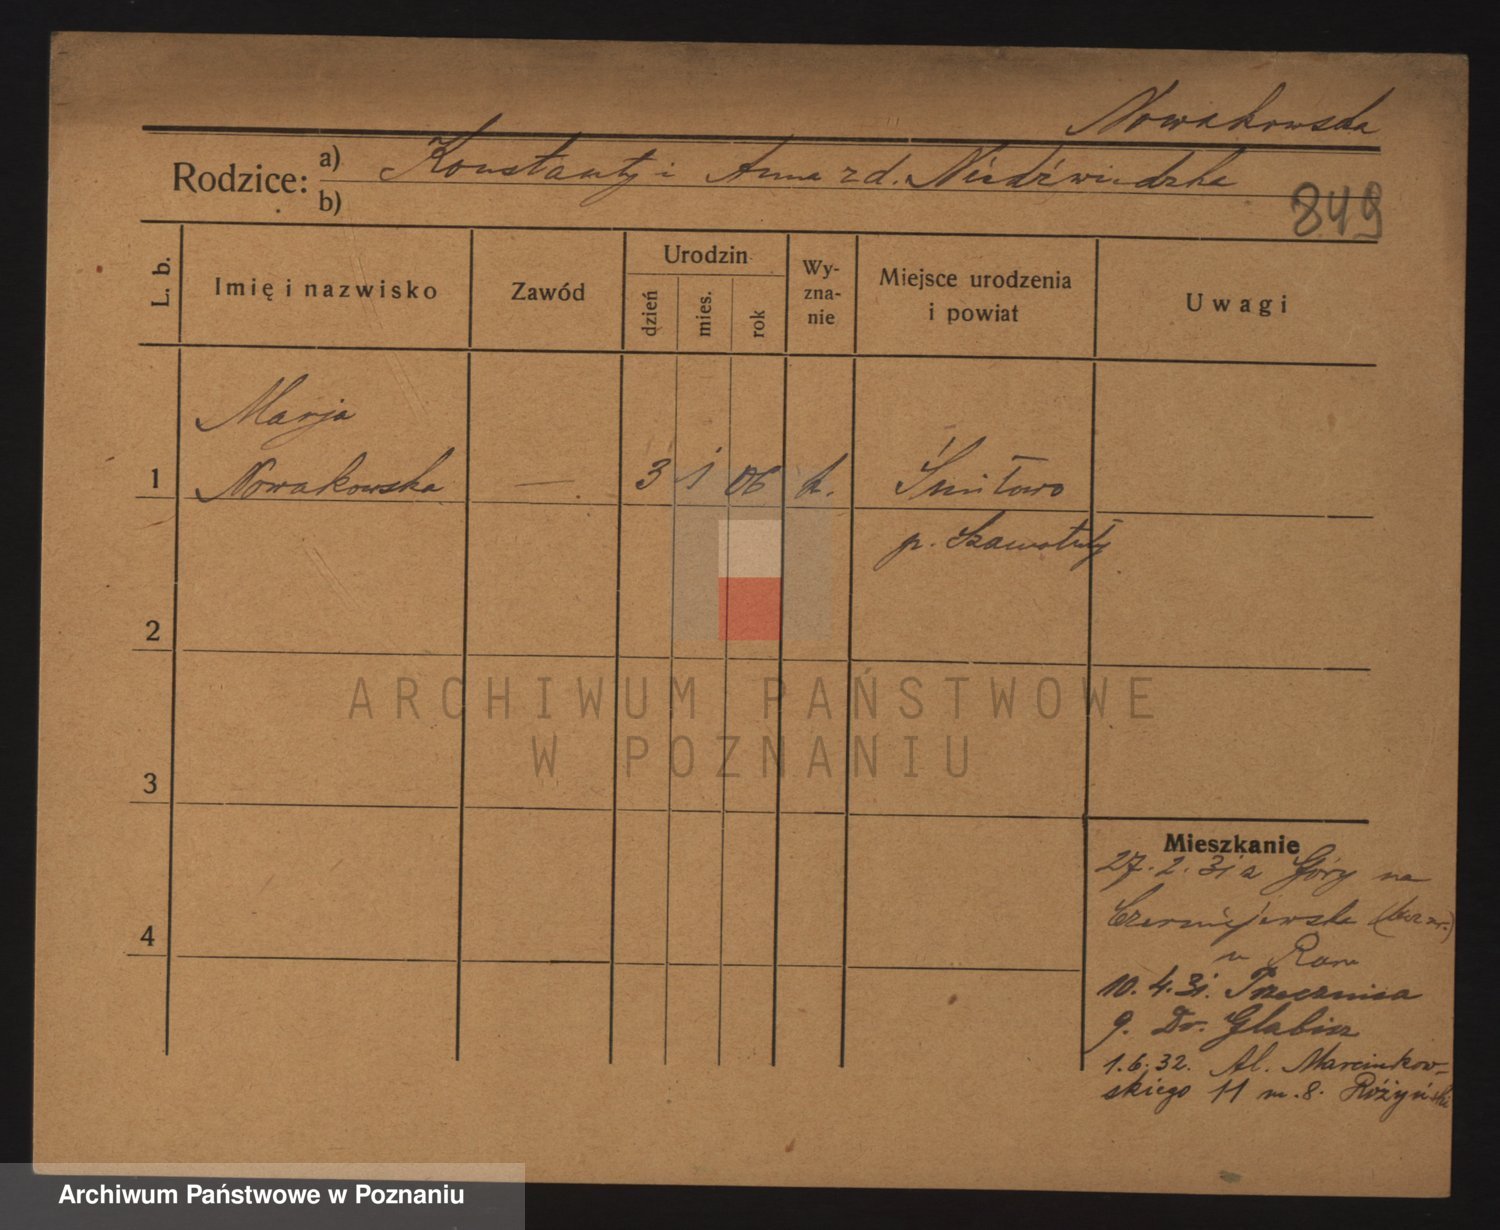 Nowakowska
Rodzice: a) Konstanty i Anna z d. Niedźwiedzka
b)
849
L. b.
Imię i nazwisko
Zawód
Urodzin
dzień
mies.
rok
Wy-
zna-
nie
Miejsce urodzenia
i powiat
Uwagi
Marja
1 Nowakowska — 3 1 06 k. Śmiłowo
p. Szamotuły
2
3
4
ARCHIWUM PAŃSTWOWE
W POZNANIU
Mieszkanie
27.2.31 z Góry na
Czerniejewska
u
10.4.31. Przecznica
9. Dr. Glabisz
1.6.32. Al. Marcinkow-
skiego 11 m. 8. Różyński
Archiwum Państwowe w Poznaniu